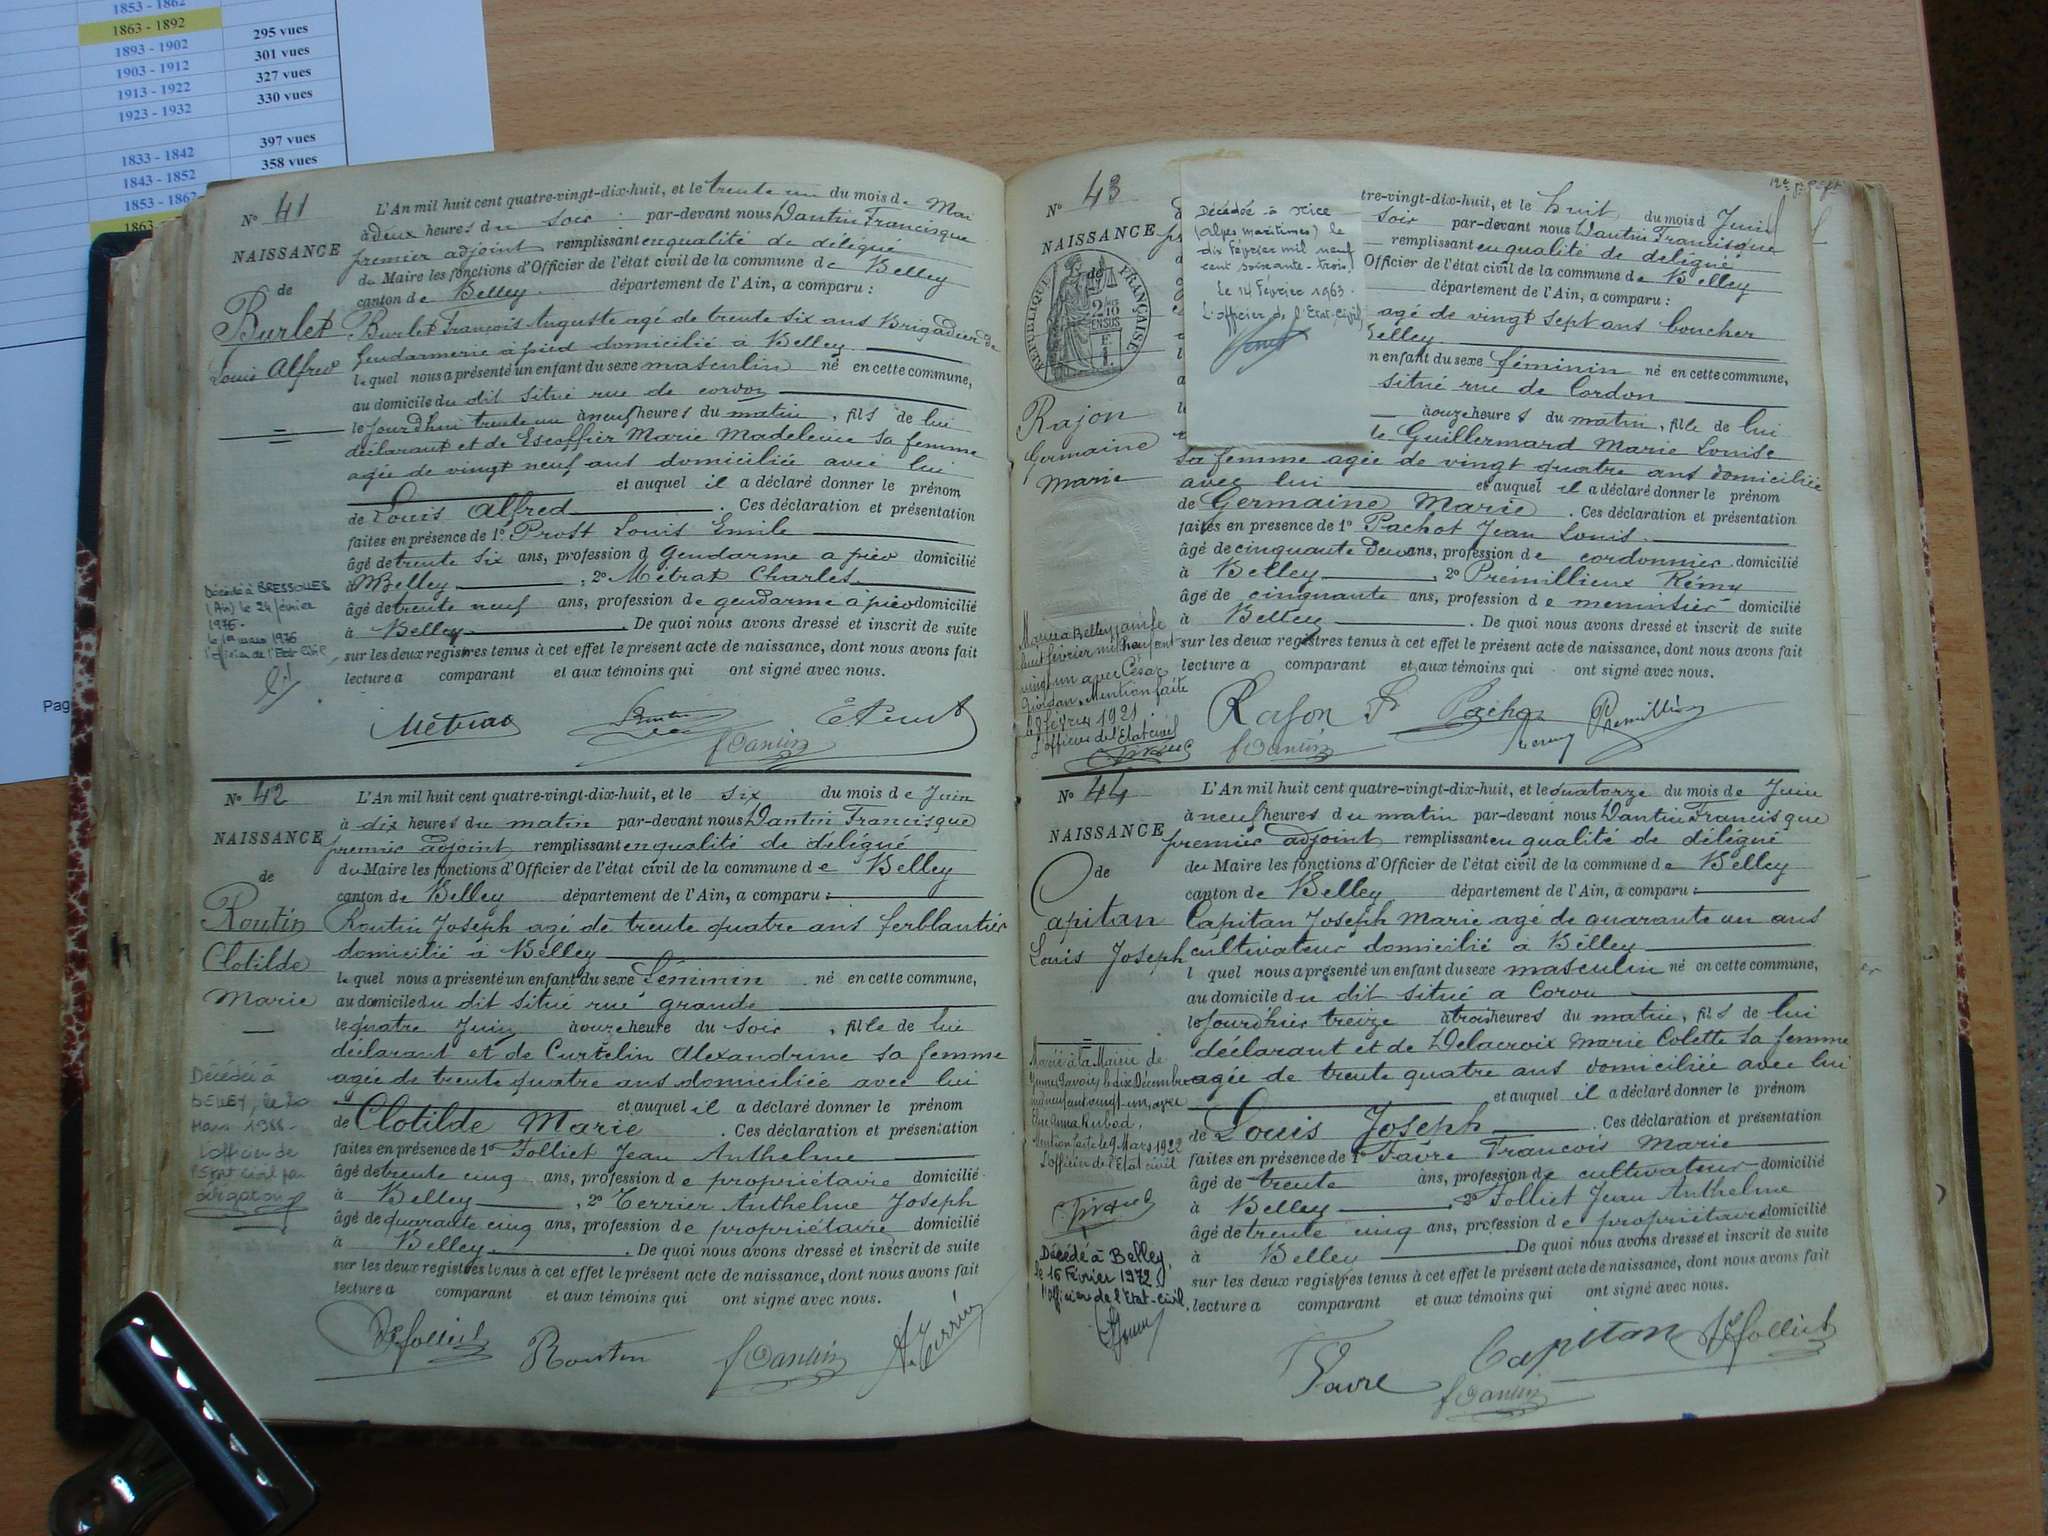 1853 - 1862
1863 - 1892 295 vues
1893 - 1902 301 vues
1903 - 1912 327 vues
1913 - 1922 330 vues
1923 - 1932
397 vues
1833 - 1842 358 vues
1843 - 1852
1853 - 1862
1863
Pag
N° 41
NAISSANCE
de
Burlet
Louis Alfred
Décédé à BRESSOLLES
(Ain) le 24 février
1976.
le 1er mars 1976
l'officier de l'Etat Civil
L'An mil huit cent quatre-vingt-dix-huit, et le trente un du mois de Mai
à deux heures du soir par-devant nous Dantin Francisque
premier adjoint remplissant en qualité de délégué
du Maire les fonctions d'Officier de l'état civil de la commune de Belley
canton de Belley département de l'Ain, a comparu :
Burlet François Auguste agé de trente six ans Brigadier de
Gendarmerie à pied domicilié à Belley
lequel nous a présenté un enfant du sexe masculin né en cette commune,
au domicile du dit situé rue de cordon
le jourdhui trente un à neuf heures du matin, fils de lui
déclarant et de Escoffier Marie Madeleine sa femme
agée de vingt neuf ans domiciliée avec lui
et auquel il a déclaré donner le prénom
de Louis Alfred. Ces déclaration et présentation
faites en présence de 1° Prost Louis Emile
âgé de trente six ans, profession d gendarme a pied domicilié
à Belley, 2° Métrat Charles
âgé de trente neuf ans, profession de gendarme à pied domicilié
à Belley. De quoi nous avons dressé et inscrit de suite
sur les deux registres tenus à cet effet le présent acte de naissance, dont nous avons fait
lecture a comparant et aux témoins qui ont signé avec nous.
Métrat
f Dantin
N° 42
NAISSANCE
de
Routin
Clotilde
Marie
Décédée à
BELLEY, le 20
Mars 1988
L'officier de
l'Etat civil par
délégation
L'An mil huit cent quatre-vingt-dix-huit, et le six du mois de Juin
à dix heures du matin par-devant nous Dantin Francisque
premier adjoint remplissant en qualité de délégué
du Maire les fonctions d'Officier de l'état civil de la commune de Belley
canton de Belley département de l'Ain, a comparu :
Routin Joseph agé de trente quatre ans ferblantier
domicilié à Belley
lequel nous a présenté un enfant du sexe féminin né en cette commune,
au domicile du dit situé rue grande
le quatre Juin à onze heure du soir, fille de lui
déclarant et de Curtelin Alexandrine sa femme
agée de trente quatre ans domiciliée avec lui
et auquel il a déclaré donner le prénom
de Clotilde Marie. Ces déclaration et présentation
faites en présence de 1° Folliet Jean Anthelme
âgé de trente cinq ans, profession de propriétaire domicilié
à Belley, 2° Terrier Anthelme Joseph
âgé de quarante cinq ans, profession de propriétaire domicilié
à Belley. De quoi nous avons dressé et inscrit de suite
sur les deux registres tenus à cet effet le présent acte de naissance, dont nous avons fait
lecture a comparant et aux témoins qui ont signé avec nous.
Folliet Routin f Dantin A. Terrier
N° 43
NAISSANCE
de
RÉPUBLIQUE FRANÇAISE
2/10 EN SUS
Rajon
Germaine
Marie
Mariée à Belley, le
huit février mil neuf cent
vingt un avec César
Mention faite
le 8 février 1921
L'officier de l'Etat civil
Décédée à Nice
(Alpes maritimes) le
dix février mil neuf
cent soixante-trois.
Le 14 Février 1963.
L'officier de l'Etat-Civil
tre-vingt-dix-huit, et le huit du mois d Juin
soir par-devant nous Dantin Francisque
remplissant en qualité de délégué
Officier de l'état civil de la commune de Belley
département de l'Ain, a comparu :
agé de vingt sept ans boucher
Belley
n enfant du sexe féminin né en cette commune,
situé rue de Cordon
à onze heures du matin, fille de lui
de Guillermard Marie Louise
sa femme agée de vingt quatre ans domiciliée
avec lui et auquel il a déclaré donner le prénom
de Germaine Marie. Ces déclaration et présentation
faites en présence de 1° Pachot Jean Louis
âgé de cinquante deux ans, profession de cordonnier domicilié
à Belley, 2° Prémillieux Rémy
âgé de cinquante ans, profession de menuisier domicilié
à Belley. De quoi nous avons dressé et inscrit de suite
sur les deux registres tenus à cet effet le présent acte de naissance, dont nous avons fait
lecture a comparant et aux témoins qui ont signé avec nous.
Rajon Pachot Remy Premillieu
f Dantin
N° 44
NAISSANCE
de
Capitan
Louis Joseph
Marié à la Mairie de
le dix Décembre
mil neuf cent vingt-un, avec
Mention faite le 9 Mars 1922
L'officier de l'Etat civil
Décédé à Belley,
le 16 Février 1972
l'Officier de l'Etat-Civil,
L'An mil huit cent quatre-vingt-dix-huit, et le quatorze du mois de Juin
à neuf heures du matin par-devant nous Dantin Francisque
premier adjoint remplissant en qualité de délégué
du Maire les fonctions d'Officier de l'état civil de la commune de Belley
canton de Belley département de l'Ain, a comparu :
Capitan Joseph Marie agé de quarante un ans
cultivateur domicilié à Belley
l quel nous a présenté un enfant du sexe masculin né en cette commune,
au domicile du dit situé a Coron
le jourd'hier treize à trois heures du matin, fils de lui
déclarant et de Delacroix Marie Colette sa femme
agée de trente quatre ans domiciliée avec lui
et auquel il a déclaré donner le prénom
de Louis Joseph. Ces déclaration et présentation
faites en présence de 1° Favre François Marie
âgé de trente ans, profession de cultivateur domicilié
à Belley 2° Folliet Jean Anthelme
âgé de trente cinq ans, profession de propriétaire domicilié
à Belley. De quoi nous avons dressé et inscrit de suite
sur les deux registres tenus à cet effet le présent acte de naissance, dont nous avons fait
lecture a comparant et aux témoins qui ont signé avec nous.
Favre Capitan Folliet
f Dantin